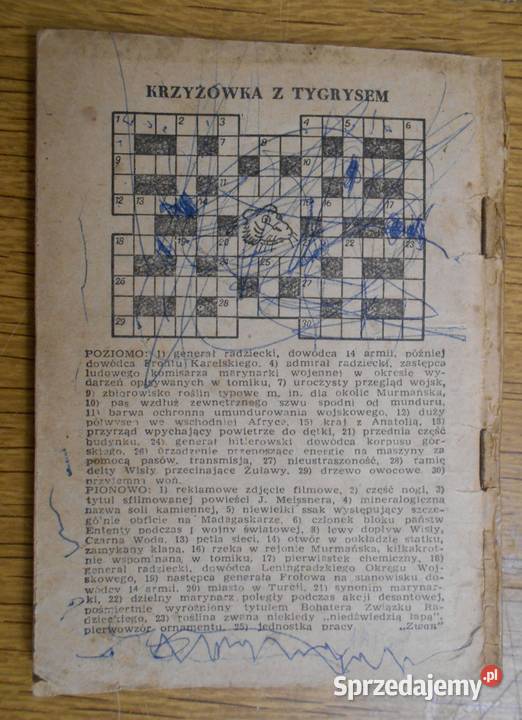 KRZYŻÓWKA Z TYGRYSEM
1 2 3 4 5 6
7 8
9 10
11
12 13 14 15 16 17
18 19 20 21 22 23
24 25
26 27
28
29 30
POZIOMO: 1) generał radziecki, dowódca 14 armii, później
dowódca Frontu Karelskiego, 4) admirał radziecki, zastępca
ludowego komisarza marynarki wojennej w okresie wy-
darzeń opisywanych w tomiku, 7) uroczysty przegląd wojsk,
9) zbiorowisko roślin typowe m. in. dla okolic Murmańska,
10) pas wzdłuż zewnętrznego szwu spodni od munduru,
11) barwa ochronna umundurowania wojskowego, 12) duży
półwysep we wschodniej Afryce, 15) kraj z Anatolią, 18)
przyrząd wpychający powietrze do dętki, 21) przednia część
budynku, 24) generał hitlerowski dowódca korpusu gór-
skiego, 26) urządzenie przenoszące energię na maszyny za
pomocą pasów, transmisja, 27) nieustraszoność, 28) ramię
delty Wisły przecinające Żuławy, 29) drzewo owocowe 30)
przyjemna woń.
PIONOWO: 1) reklamowe zdjęcie filmowe, 2) część nogi, 3)
tytuł sfilmowanej powieści J. Meissnera, 4) mineralogiczna
nazwa soli kamiennej, 5) niewielki ssak występujący szcze-
gólnie obficie na Madagaskarze, 6) członek bloku państw
Ententy podczas I wojny światowej, 8) lewy dopływ Wisły,
Czarna Woda, 13) pętla sieci, 14) otwór w pokładzie statku,
zamykany klapą, 16) rzeka w rejonie Murmańska, kilkakrot-
nie wspominana w tomiku, 17) pierwiastek chemiczny, 18)
generał radziecki, dowódca Leningradzkiego Okręgu Woj-
skowego, 19) następca generała Frołowa na stanowisku do-
wódcy 14 armii, 20) miasto w Turcji, 21) synonim marynar-
ki, 22) dzielny marynarz poległy podczas akcji desantowej,
pośmiertnie wyróżniony tytułem Bohatera Związku Ra-
dzieckiego, 23) roślina zwana niekiedy „niedźwiedzią łapą",
pierwowzór ornamentu, 25) jednostka pracy. „Zwan"
Sprzedajemy.pl